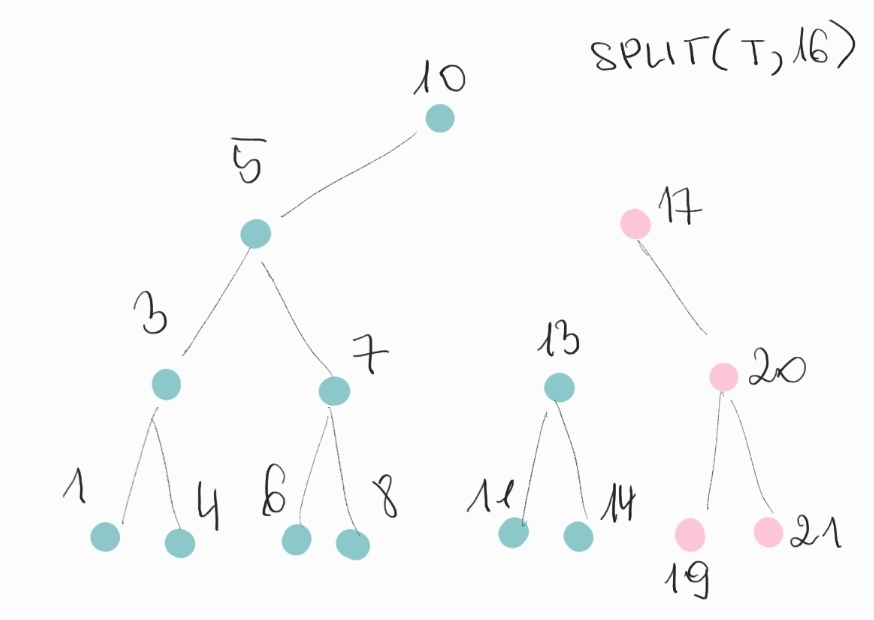 SPLIT(T,16)
10
5
17
3
7
13
20
1
4
6
8
11
14
19
21